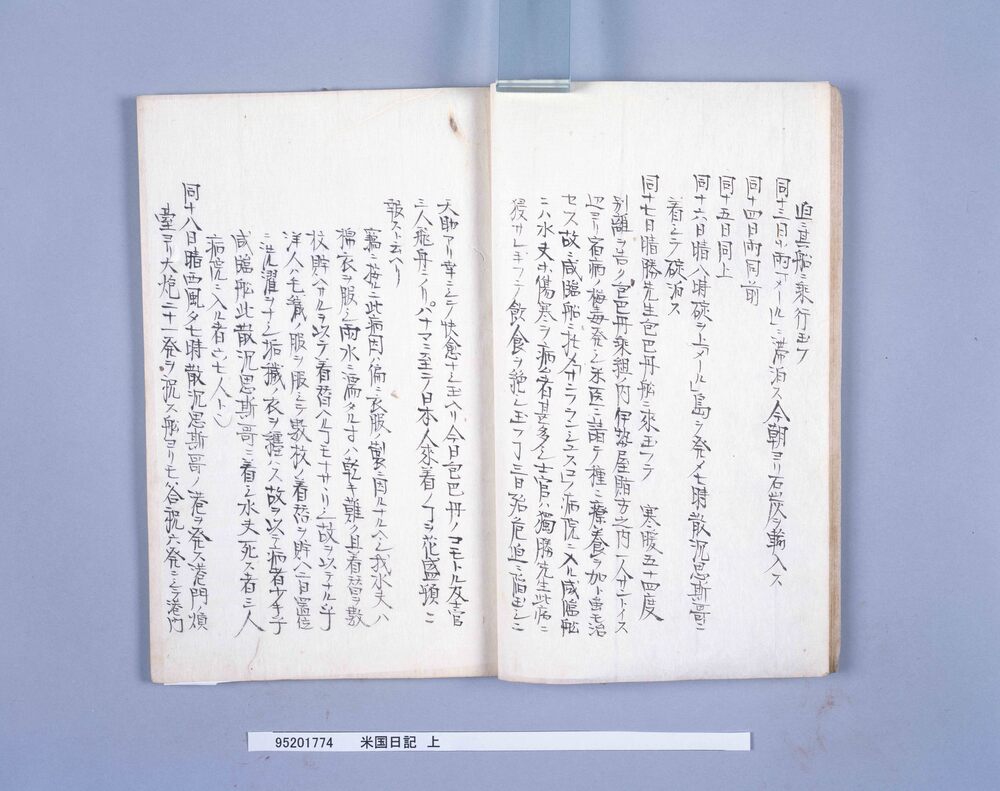 迫ニ其船ニ乗行玉フ
同十三日小雨「メール」ニ滞泊ス今朝ヨリ石炭ヲ輸入ス
同十四日雨同前
同十五日同上
同十六日晴八時碇ヲ上メール島ヲ発メ七時散沉思斯哥ニ
着シテ碇泊ス
同十七日晴勝先生包巴丹船ニ来玉フテ 寒暖五十四度
別離ヲ告ク包巴丹乗組ノ内伊勢屋賄方之内一人サントイス
辺ヨリ宿病ノ梅毒発シ米医ニ請テ種々療養ヲ加フ虽モ治
セス故ニ咸臨船ニ托メサンフランシユスコノ病院ニ入ル咸臨船
ニハ水夫ホ傷寒ヲ病者甚多ク士官ハ獨勝先生此病ニ
侵サレ玉フテ飲食ヲ絶シ玉フ丁三日殆危迫ニ陥玉シニ
天助アリ幸ニシテ快愈ナシ玉ヘリ今日包巴丹ノコモトル及士官
三人飛舟ニノリパナマニ至テ日本人来着ノ丁ヲ花盛頓ニ
報スト云ヘリ
竊ニ按ニ此病因ハ偏ニ衣服ノ製ニ因ルナルヘシ我水夫ハ
棉衣ヲ服シ雨水ニ濡タル寸ハ乾キ難ク且着替ヲ数
枚貯ヘサルヲ以テ着替ヘル丁モナサヽリシ故ヲ以テナル乎
洋人ハ毛織ノ服ヲ服シテ数枚ノ着替ヲ貯ヘ一日置位
ニ洗濯ヲナシ垢臓ノ衣ヲ纏ハス故ヲ以テ病者少キ乎
咸臨船此散沉思斯哥ニ着シ水夫死ス者三人
病院ニ入ル者六七人ト云
同十八日晴西風夕七時散沉思斯哥ノ港ヲ発ス港門ノ煩
臺ヨリ大炮二十一発ヲ祝ス船ヨリモ答祝六発ニシテ港内
95201774 米国日記 上